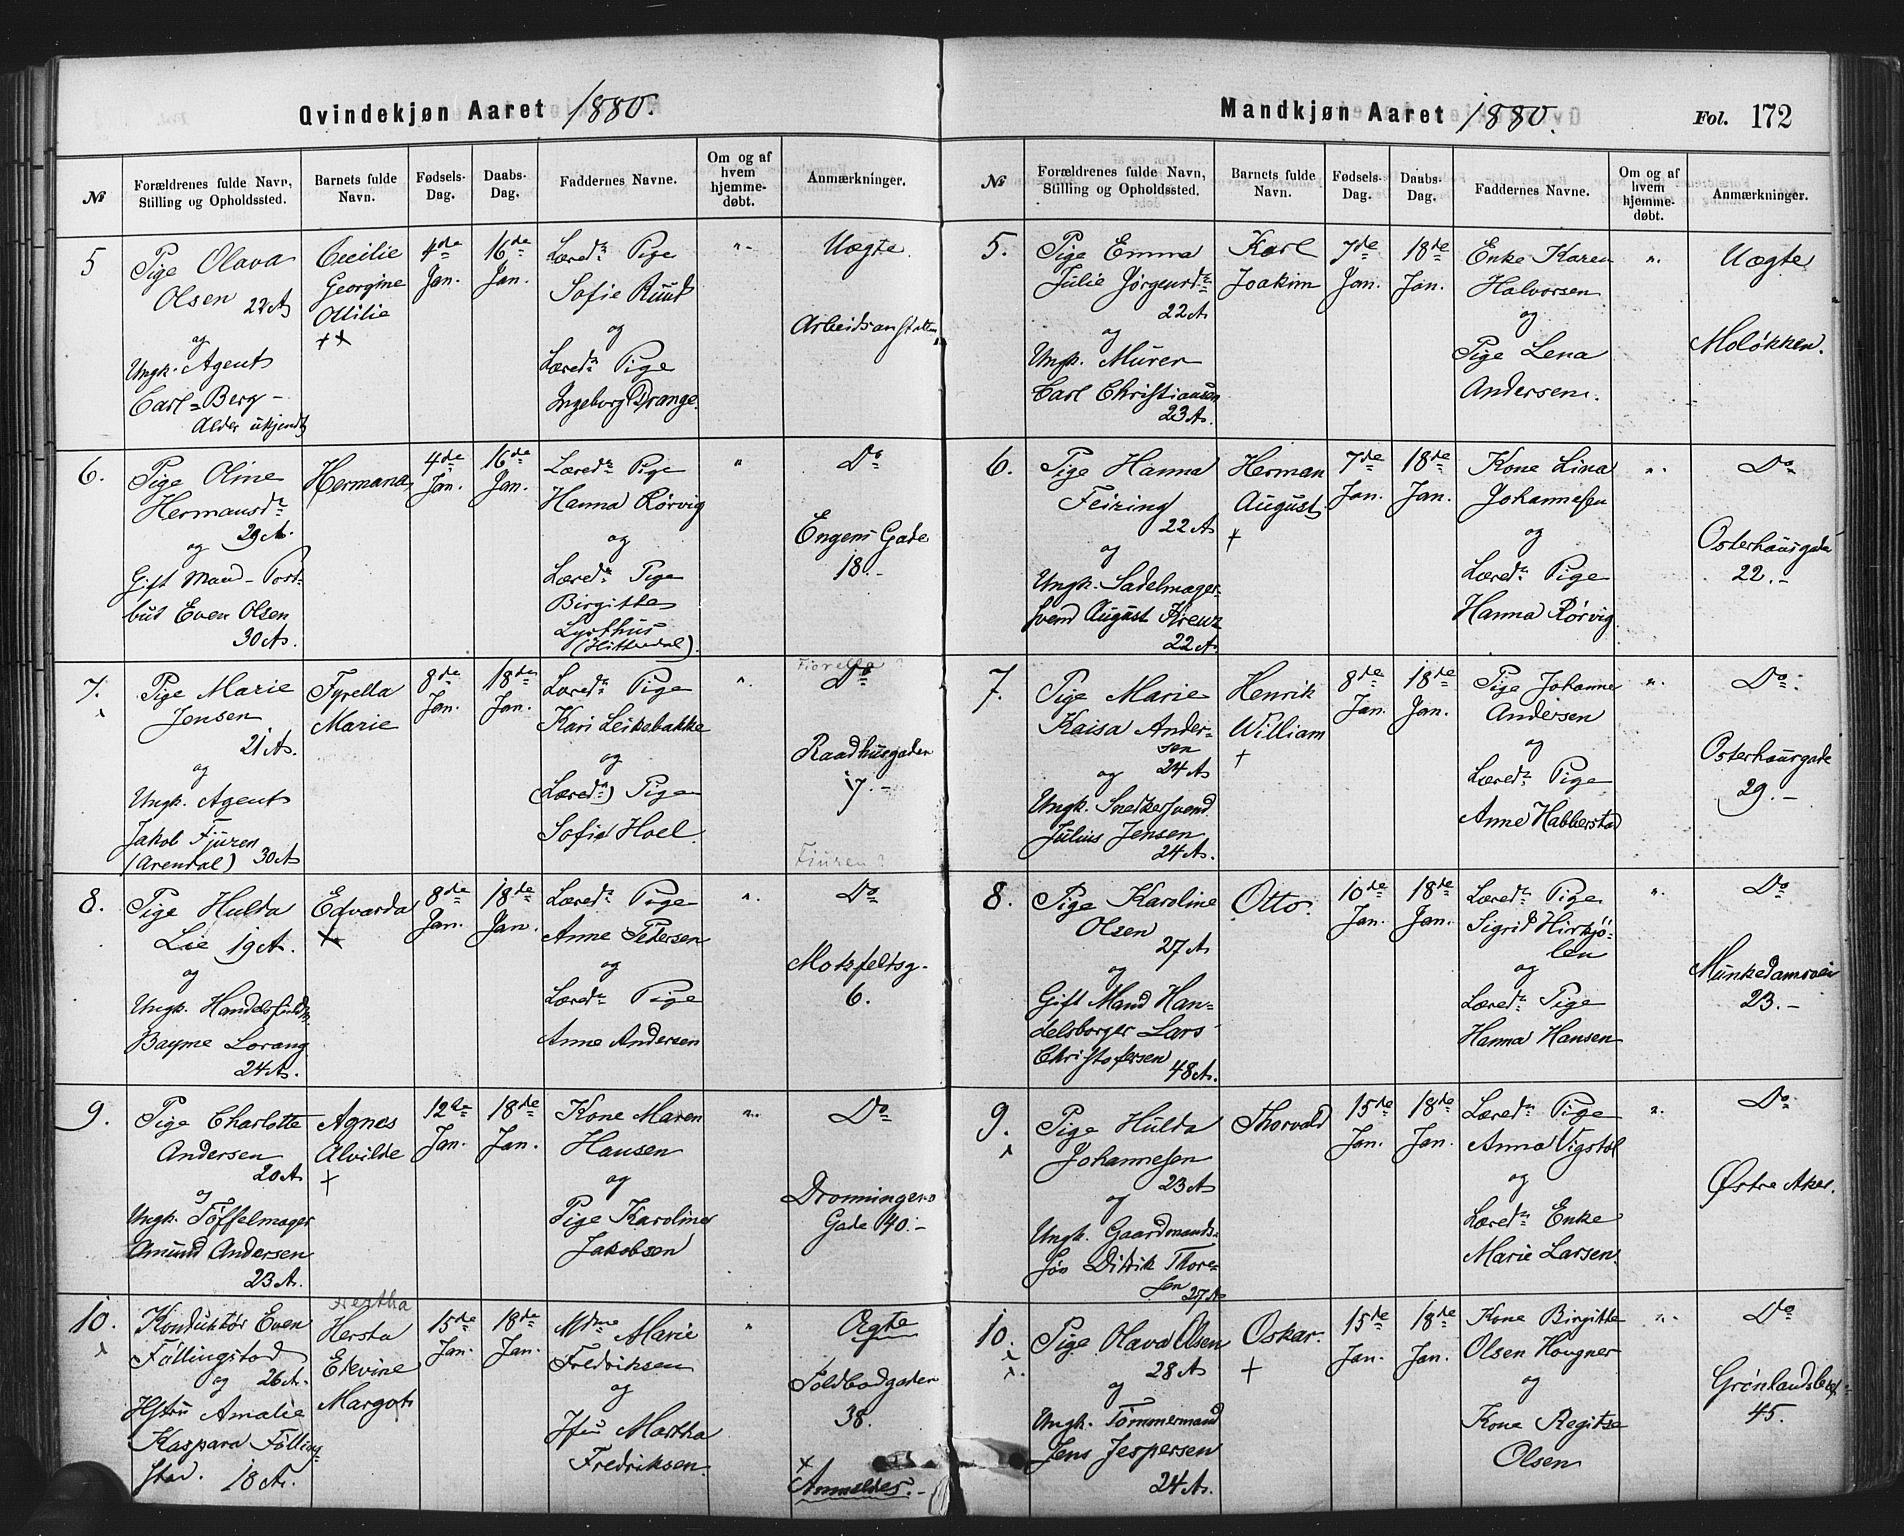 Qvindekjøn Aaret 1880.
№
Forældrenes fulde Navn, Stilling og Opholdssted.
Barnets fulde Navn.
Fødsels-Dag.
Daabs-Dag.
Faddernes Navne.
Om og af hvem hjemme-døbt.
Anmærkninger.
5
Pige Olava
Olsen 22 A
og
Ungk. Agent
Carl Berg -
Alder ukjendt
Cecilie
Georgine
Otilie
4de
Jan.
16de
Jan.
Læred. Pige
Sofie Ruud
og
Læred. Pige
Ingeborg Drange.
"
Uægte
Arbeidsanstalten
6.
Pige Oline
Hermansd.
29 A.
og
Gift Mand - Post-
bud Even Olsen
30 A.
Hermana
4de
Jan.
16de
Jan.
Læred. Pige
Hanna Rørvig
og
Læred. Pige
Birgitte
Lysthus
(Hitterdal).
"
Do
Engens Gade
18.-
7.
Pige Marie
Jensen
21 A.
og
Ungk. Agent
Jakob Fjuren
(Arendal) 30 A
Fyrella
Marie
8de
Jan.
18de
Jan.
Læred. Pige
Kari Leikebakke
og
(Læred.) Pige
Sofie Hoel.
"
Fiorella?
Do
Raadhusgaden
17.-
Fiuren?
8.
Pige Hulda
Lie 19 A.
og
Ungk. Handelsfuldm.
Bayme Lorang
24 A.
Edvarda
8de
Jan.
18de
Jan.
Læred. Pige
Anne Pedersen
og
Læred. Pige
Anne Andersen
"
Do
Motzfeltsg.
6.
9.
Pige Charlotte
Andersen
20 A
og
Ungk. Tøffelmager
Amund Andersen
23 A.
Agnes
Alvilde
+
12te
Jan.
18de
Jan.
Kone Maren
Hansen
og
Pige Karoline
Jakobsen
"
Do
Dronningens
Gade 40.-
10.
Konduktør Even
Føllingstad
og 26 A.
Hstru Amalie
Kaspara Følling
stad. 18 A.
Hertha
Hersta
Ekvine
Margot
15de
Jan.
18de
Jan.
Mdme Marie
Fredriksen
og
Jfru Martha
Fredriksen.
"
Ægte
Toldbodgaden
38.
+
Anmeldes.-
Mandkjøn Aaret 1880.
Fol. 172
№
Forældrenes fulde Navn, Stilling og Opholdssted.
Barnets fulde Navn.
Fødsels-Dag.
Daabs-Dag.
Faddernes Navne.
Om og af hvem hjemme-døbt.
Anmærkninger.
5.
Pige Emma
Julie Jørgensd.
22 A
og
Ungk. Murer
Carl Christiansen
23 A.
Karl
Joakim
7de
Jan.
18de
Jan.
Enke Karen
Halvorsen
og
Pige Lena
Andersen.
"
Uægte
Moløkken.
6.
Pige Hanna
Feiring
22 A
og
Ungk. Sadelmager
svend August Kreuz
22 A.
Herman
August
+
7de
Jan.
18de
Jan.
Kone Lina
Johannesen
og
Læred. Pige
Hanna Rørvig
"
Do
Osterhausgade
22.-
7.
Pige Marie
Kaisa Ander-
sen
og 24 A
Ungk. Snedkersvend
Julius Jensen
24 A.
Henrik
William
+
8de
Jan.
18de
Jan.
Pige Johanne
Andersen
og
Læred. Pige
Anne Habberstad
"
Do
Osterhausgade
29.-
8.
Pige Karoline
Olsen
27 A
og
Gift Mand Han-
delsborger Lars
Christofersen
48 A.
Otto.
10de
Jan.
18de
Jan.
Læred. Pige
Sigrid Hirkjø-
len
og
Læred. Pige
Hanna Hansen
"
Do
Munkedamsvei
23.-
9.
Pige Hulda
Johannesen
23 A
og
Ungk. Gaardmands-
søn Didrik Thore-
sen 27 A
Thorvald
15de
Jan.
18de
Jan.
Læred. Pige
Anna Vigstøl
og
Læred. Enke
Marie Larsen.
"
Do
Østre Aker.
10.
Pige Olava Olsen
28 A
og
Ungk. Tømmermand
Jens Jespersen
24 A.
Oskar.
+
15de
Jan.
18de
Jan.
Kone Birgitte
Olsen Hougner
og
Kone Regitze
Olsen
"
Do
Grønlandsleret
45.